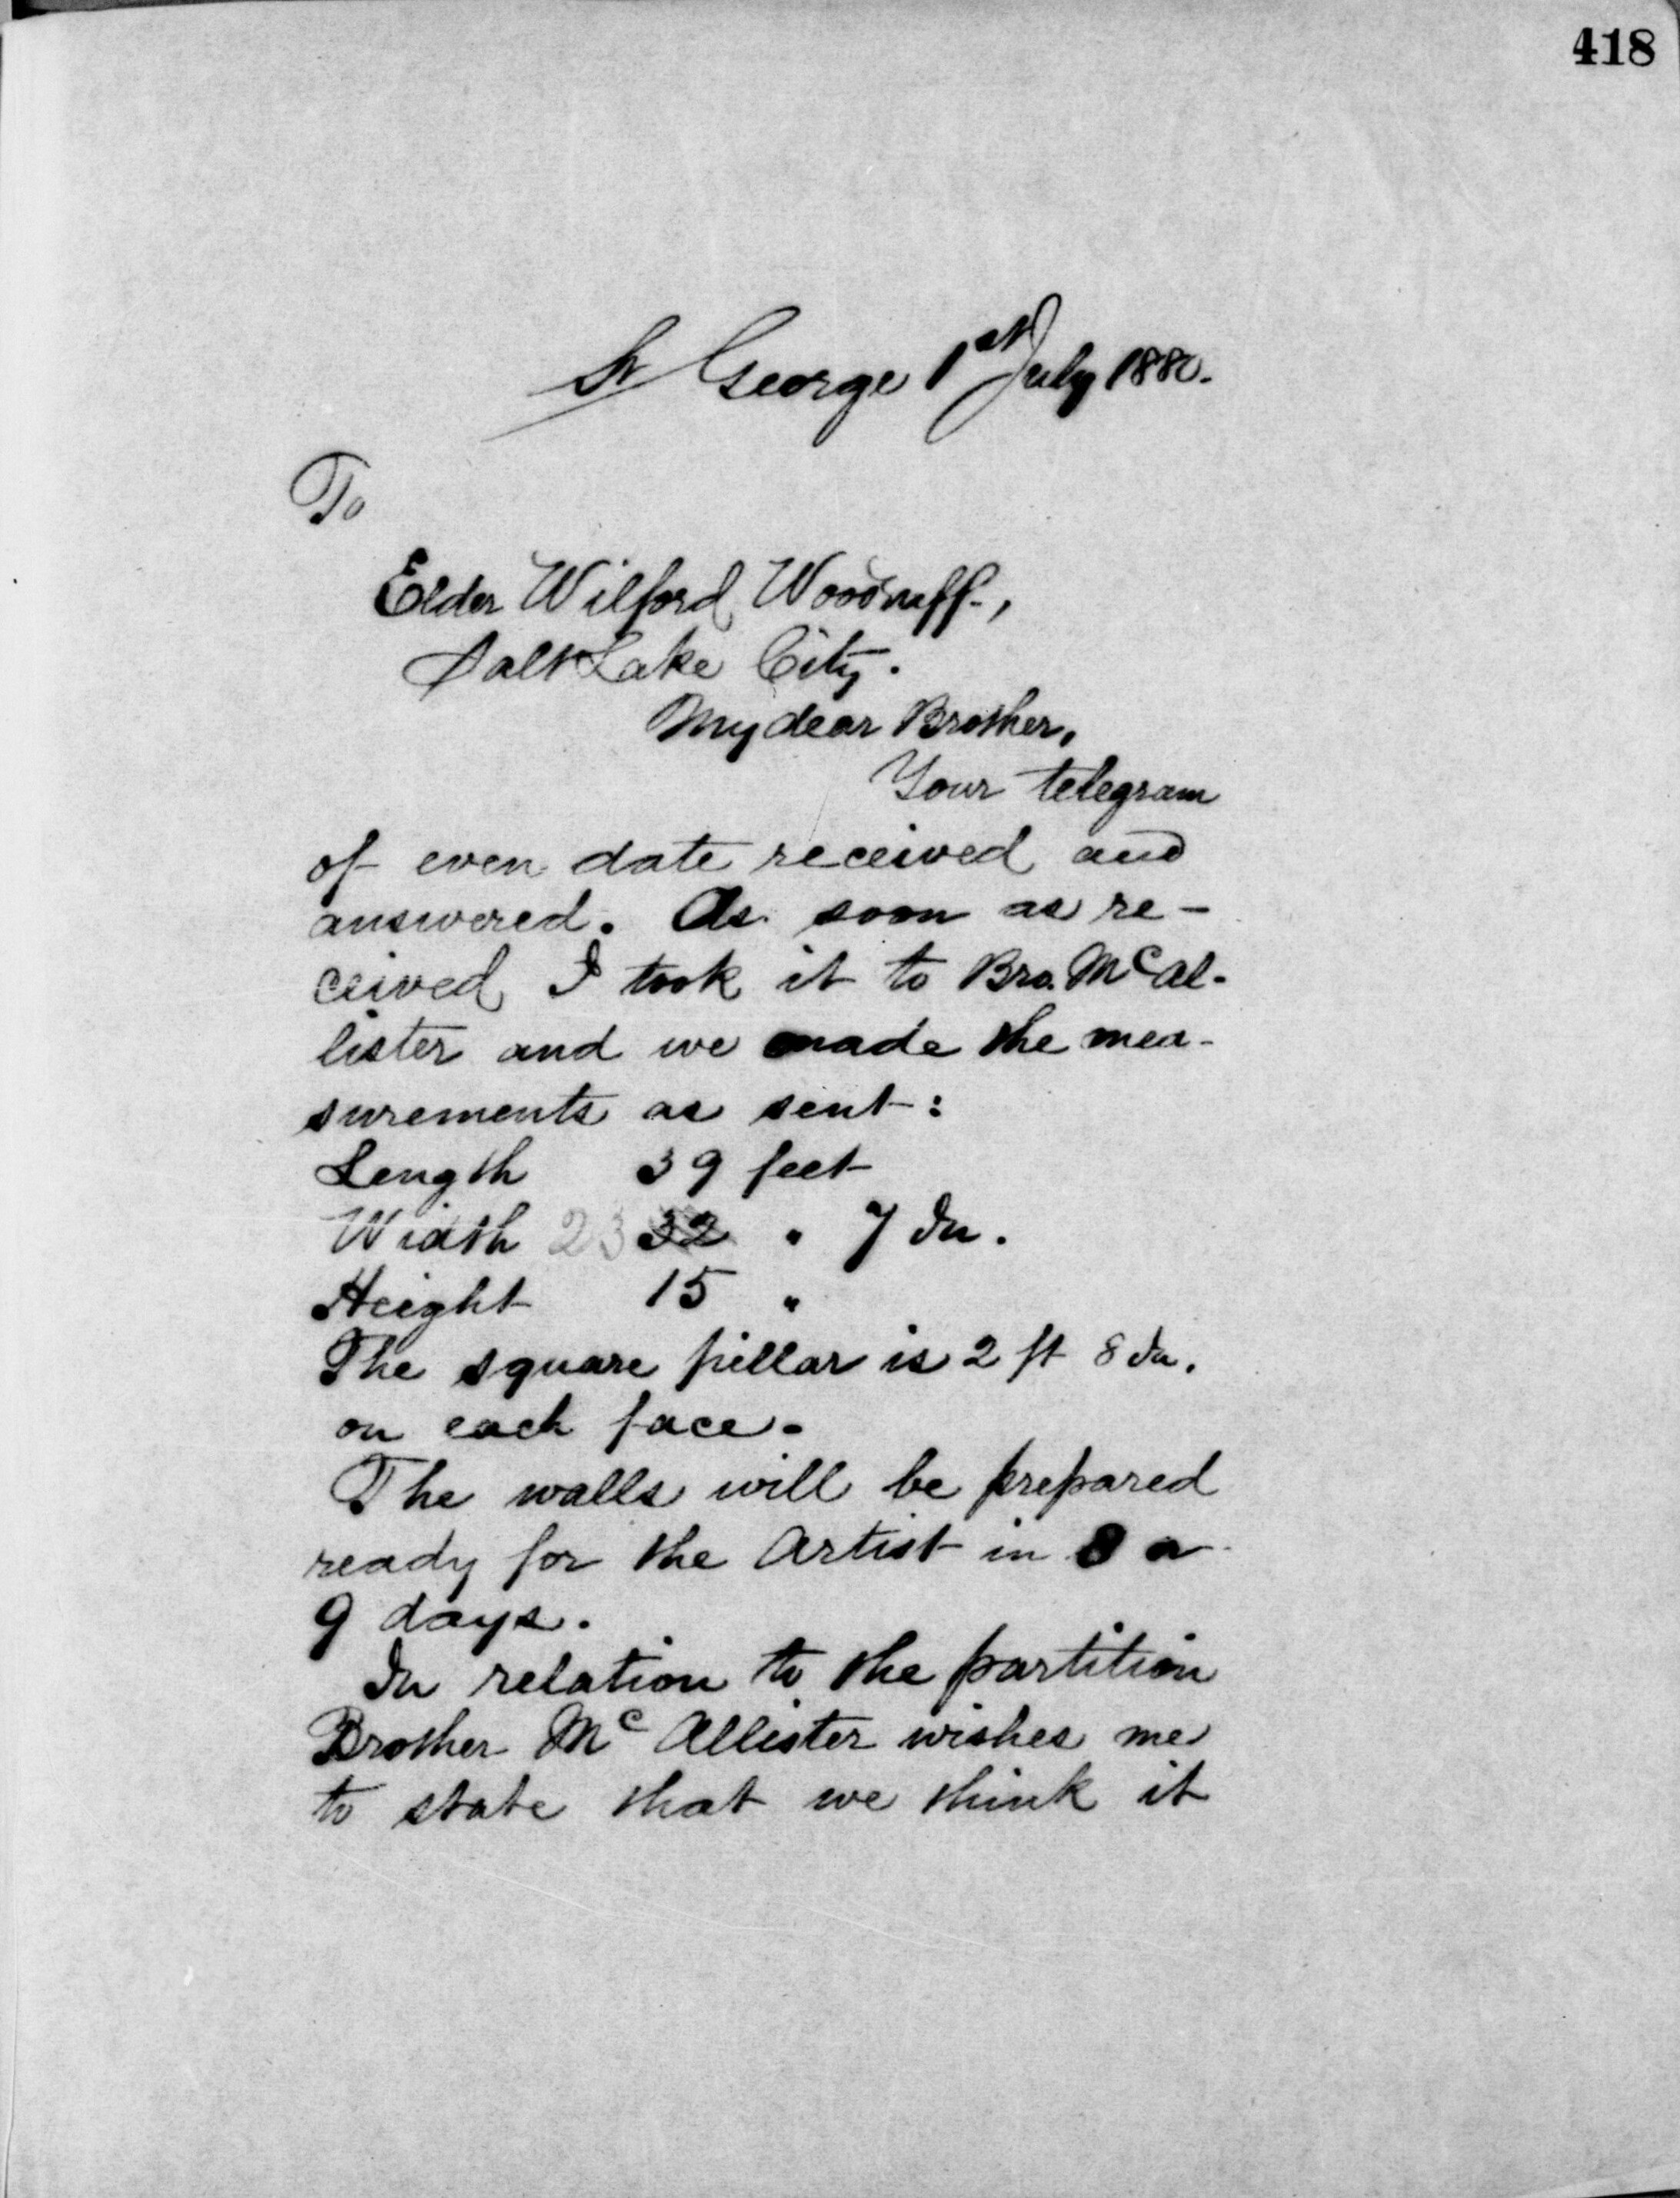 418
St George 1st July 1880.
To
Elder Wilford Woodruff,
Salt Lake City.
My dear Brother,
Your telegram
of even date received and
answered. As soon as re-
ceived I took it to Bro. McAl-
lister and we made the mea-
surements as sent:
Length 39 feet
Width 23 32 " 7 In.
Height 15 "
The square pillar is 2 ft 8 In.
on each face.
The walls will be prepared
ready for the Artist in 8 or
9 days.
In relation to the partition
Brother McAllister wishes me
to state that we think it